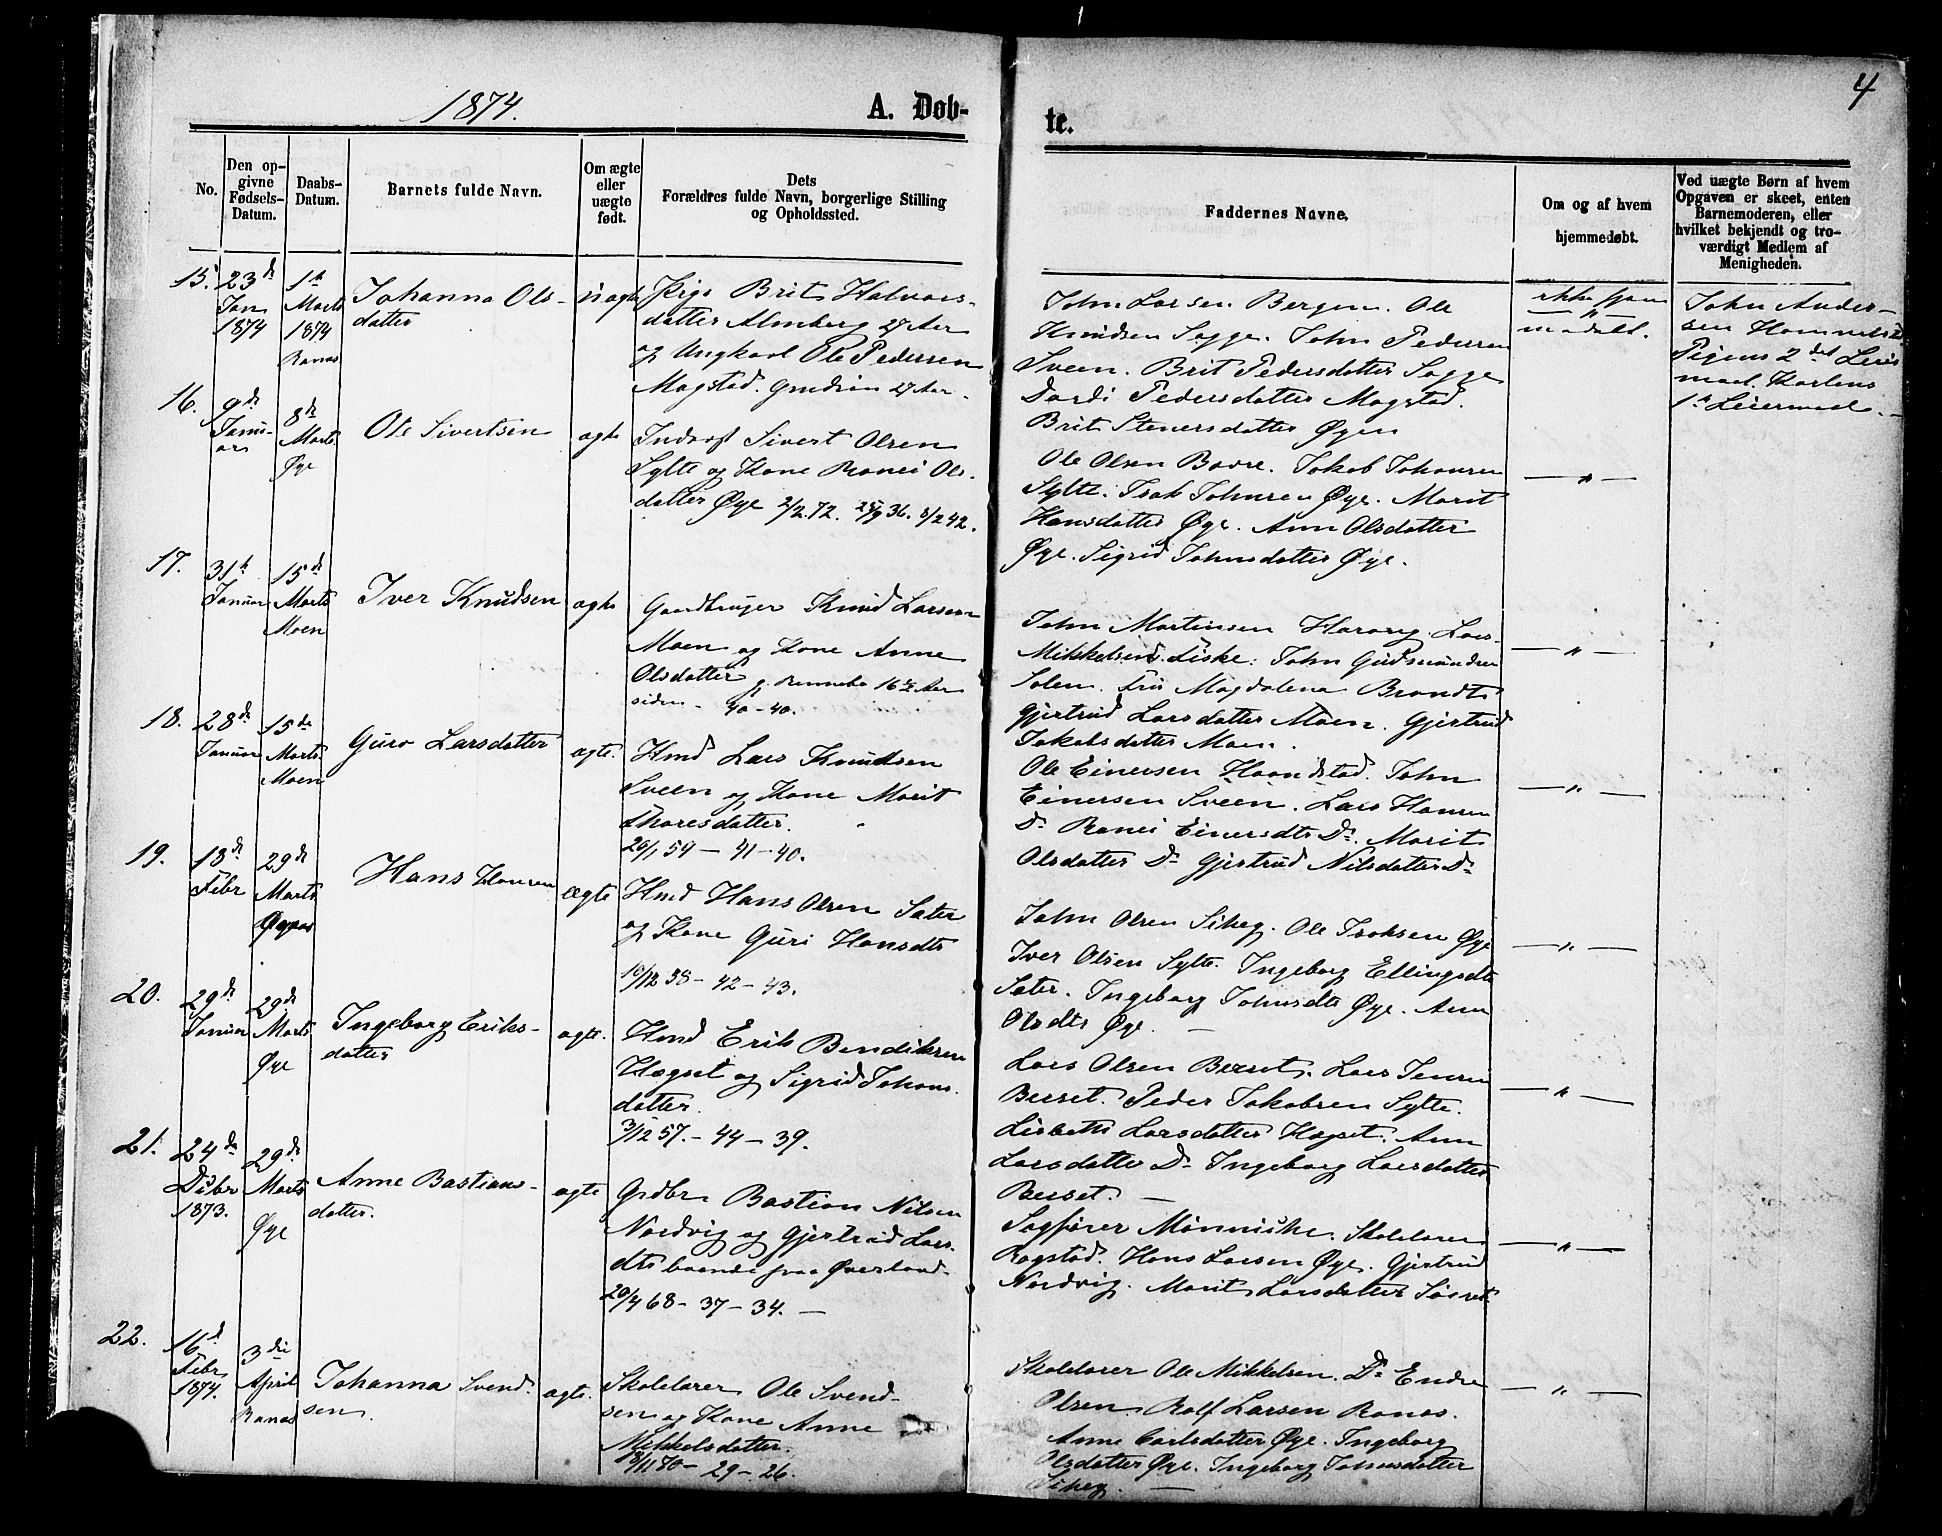 1874.
A. Døb-
te.
4
No.
Den op-
givne
Fødsels-
Datum.
Daabs-
Datum.
Barnets fulde Navn.
Om ægte
eller
uægte
født.
Dets
Forældres fulde Navn, borgerlige Stilling
og Opholdssted.
Faddernes Navne.
Om og af hvem
hjemmedøbt.
Ved uægte Børn af hvem
Opgaven er skeet, enten
Barnemoderen, eller
hvilket bekjendt og tro-
værdigt Medlem af
Menigheden.
15.
23de
Jan
1874
1ste
Marts
1874
Ranes
Johanna Ols-
datter
uægte
Pige Brit Halvors-
datter Almberg 27 Aar
og Ungkarl Ole Pedersen
Magstad. 27 Aar.
John Larsen Bergem. Ole
Knudsen Sogge. John Pedersen
Sveen. Brit Pedersdatter Sogge
Dordi Pedersdatter Magstad.
Brit Stenersdatter Øyen
ikke hjem-
medøbt.
John Ander-
sen
Pigens 2det Leier-
maal. Karlens
1ste Leiermaal.
16.
9de
Janu-
ar
8de
Marts
Øye
Ole Sivertsen
ægte
Inderst Sivert Olsen
Sylte og Kone Ranei Ols-
datter Øye 2/2.72. 25/9 36. 8/2 42.
Ole Olsen Bovre. Jakob Johansen
Sylte. Isak Johnsen Øye. Marit
Hansdatter Øye. Ann Olsdatter
Øye. Sigrid Johnsdatter Øye.
— " —
17.
31te
Januar
15de
Marts
Moen
Iver Knudsen
ægte
Gaardbruger Knud Larsen
Moen og Kone Anne
Olsdatter g. Rennebo 16 1/2 Aar
siden. 40 - 40.
John Martinsen Harang. Lars
Mikkelsen Liske. John Gudmundsen
Solem. Fru Magdalena Brandt
Gjertrud Larsdatter Moen. Gjertrud
Jakobsdatter Moen.
— " —
18.
28de
Januar
15de
Marts
Moen
Guro Larsdatter
ægte.
Hmd Lars Knudsen
Sveen og Kone Marit
Thoresdatter.
20/1 54 - 41 - 40.
Ole Einersen Haandstad. John
Einersen Sveen. Lars Hansen
Do Ranei Einersdtr Do. Marit
Olsdatter Do Gjertrud Nilsdatter Do
— " —
19.
13de
Febr
29de
Marts
Hans Hansen
ægte
Hmd Hans Olsen Sæter
og Kone Guri Hansdtr
10/12 38 - 42 - 43.
John Olsen Sjheg. Ole Isaksen Øye
Iver Olsen Sylte. Ingeborg Ellingsdtr
Sæter. Ingeborg Johnsdtr Øye. Ann
Olsdtr Øye. —
— " —
20.
29de
Januar
29de
Marts
Øye
Ingeborg Eriks-
datter
ægte.
Hmd Erik Bendiksen
Høgset og Sigrid Johans-
datter.
3/12 57. - 44 - 39.
Lars Olsen Bæset. Lars Jensen
Bæset. Peder Jakobsen Sylte.
Lisbeth Larsdatter Høgset. Ann
Larsdatter Do Ingeborg Larsdatter
Bæset. —
— " —
21.
24de
Dcbr
1873.
29de
Marts
Øye
Anne Bastians-
datter.
ægte
Grdbr Bastian Nilsen
Nordvig og Gjertrud Lars-
dtr boende paa Øverland.
20/4 68 - 37 - 34. —
Sagfører Münniche. Skolelærer
Rogstad. Hans Larsen Øye. Gjertrud
Nordvig. Marit Larsdatter
— " —
22.
16de
Febr
1874.
3die
April
Ranes
Johanna Svend-
sen.
ægte.
Skolelærer Ole Svend-
sen og Kone Anne
Mikkelsdatter.
- 29 - 26.
Skolelærer Ole Mikkelsen. Do Endre
Olsen. Rolf Larsen Ranes.
Anne Carlsdatter Øye. Ingeborg
Olsdatter Øye. Ingeborg Johnsdatter
Sjheg. —
— " —